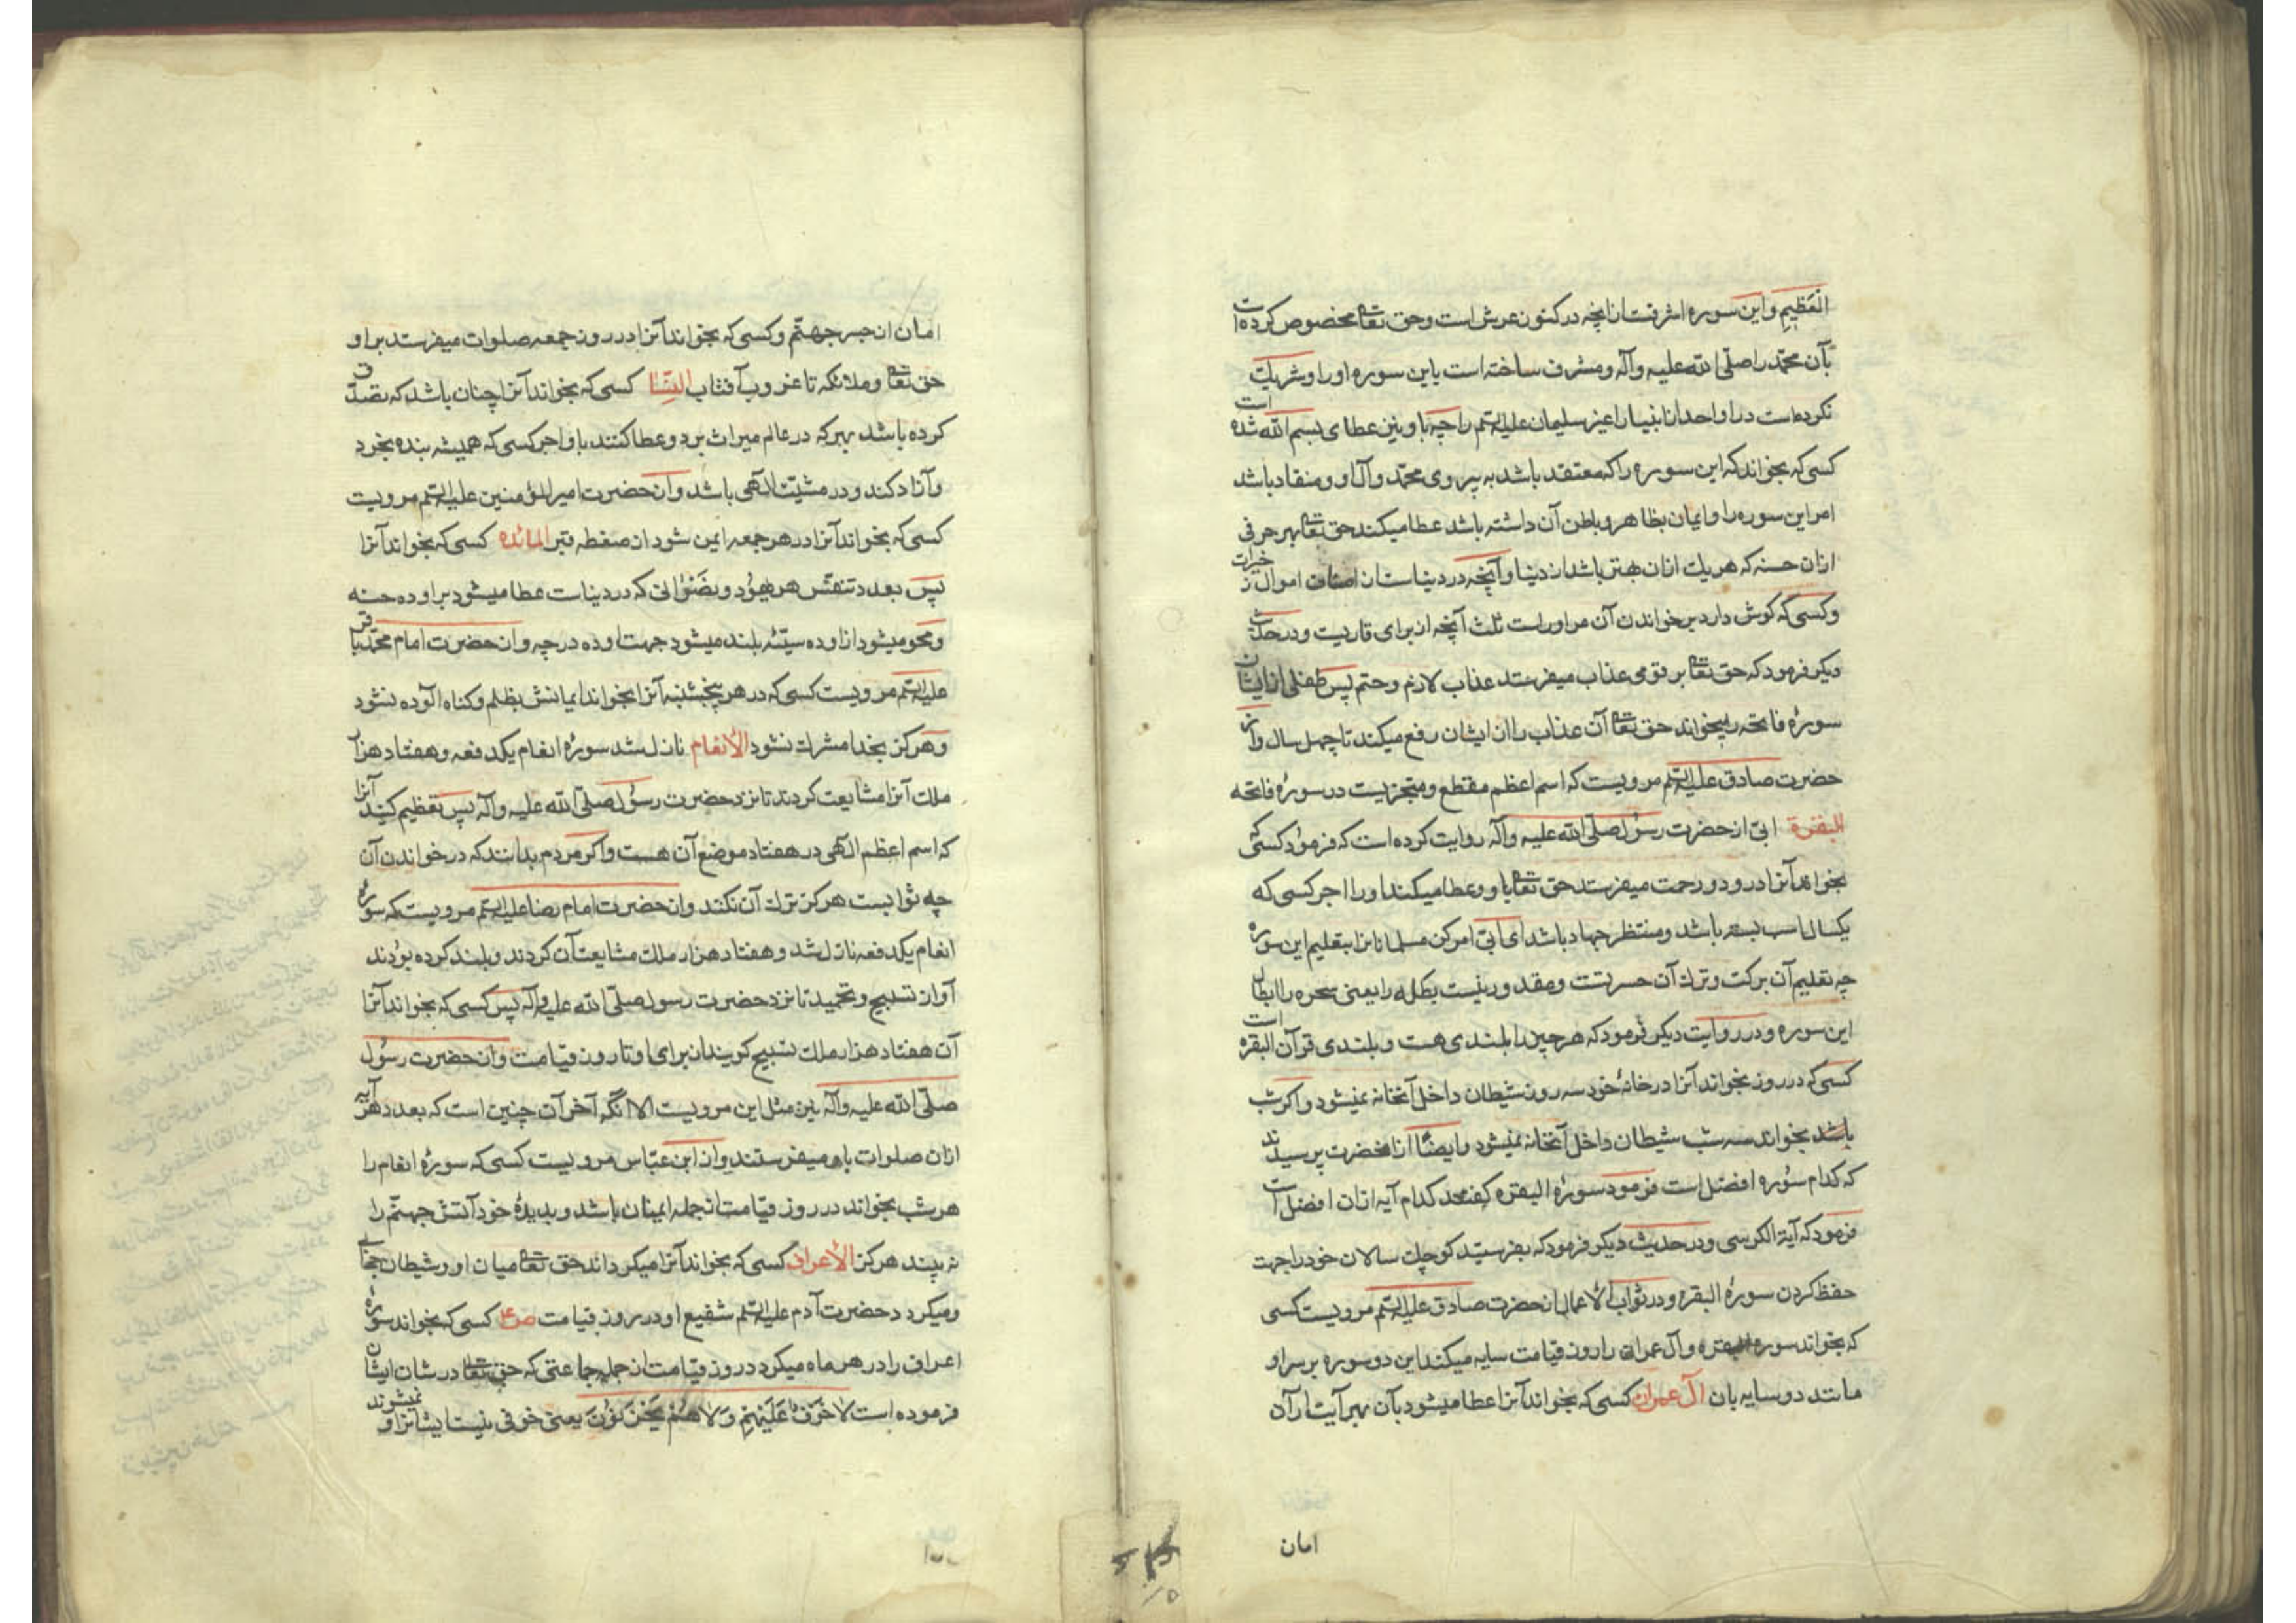 العَظیمِ و این سوره اشرفست از آنچه در کنوز عرش است و حق تعالی مخصوص کرده است
بآن محمّد را صلّی الله علیه و آله و مشرف ساخته است باین سوره او را و شریک
نکرده است در او احد از انبیا را غیر سلیمان علیه السّلم را چه باو نیز عطای بسم الله شده است
کسی که بخواند که این سوره را که معتقد باشد به پیروی محمّد و آل او و منقاد باشد
امر این سوره را و ایمان بظاهر و باطن آن داشته باشد عطا میکند حق تعالی بهر حرفی
ازان حسنه که هر یک ازان بهتر باشد از دنیا و آنچه در دنیاست از اصناف اموال و خیرات
و کسی که کوش دارد بر خواندن آن مر او راست ثلث آنچه از برای قاریست و در حدیث
دیکر فرمود که حق تعالی بر قومی عذاب میفرستد عذاب لازم و حتم پس طفلی از ایشان
سورهٔ فاتحه را میخواند حق تعالی آن عذاب را از ایشان رفع میکند تا چهل سال و از
حضرت صادق علیه السّلم مرویست که اسم اعظم مقطع و متجزیست در سورهٔ فاتحه
البقرة ابیّ از حضرت رسُول صلّی الله علیه و آله روایت کرده است که فرمود کسی که
بخواند آنرا درود و رحمت میفرستد حق تعالی باو و عطا میکند او را اجر کسی که
یکسال اسب بسته باشد و منتظر جهاد باشد ای ابیّ امر کن مسلمانانرا بتعلیم این سوره
چه تعلیم آن برکت و ترک آن حسرتست و مقدور نیست بطله را یعنی سحره را ابطال
این سوره و در روایت دیکر فرمود که هر چیز را بلندی هست و بلندی قرآن البقره است
کسی که در روز بخواند آنرا در خانهٔ خود سه روز شیطان داخل آنخانه نمیشود و اکر شب
باشد بخواند سه شب شیطان داخل آنخانه نمیشود و ایضًا از آنحضرت پرسیدند
که کدام سُوره افضل است فرمود سورهٔ البقره کفتند کدام آیه ازان افضل است
فرمود که آیة الکرسی و در حدیث دیکر فرمود که بفرستید کوچک سالان خود را جهت
حفظ کردن سورهٔ البقره و در ثواب الاعمال از حضرت صادق علیه السّلم مرویست کسی
که بخواند سوره البقره و آل عمران را روز قیامت سایه میکند این دو سوره بر سر او
مانند دو سایه بان آل عمران کسی که بخواند آنرا عطا میشود بآن بهر آیت از آن
امان
امان از جسر جهنّم و کسی که بخواند آنرا در روز جمعه صلوات میفرستد بر او
حق تعالی و ملائکه تا غروب آفتاب النِّسَا کسی که بخواند آنرا چنان باشد که تصدّق
کرده باشد بهر که در عالم میراث برد و عطا کنند باو اجر کسی که همیشه بنده بخرد
و آزاد کند و در مشیّت الهی باشد و از حضرت امیر المؤمنین علیه السّلم مرویست
کسی که بخواند آنرا در هر جمعه ایمن شود از ضغطه قبر المائده کسی که بخواند آنرا
پس بعدد تنفّس هر یهُود و نصرانی که در دنیاست عطا میشود براو ده حسنه
و محو میشود از او ده سیّئه بلند میشود جهت او ده درجه و از حضرت امام محمّد باقر
علیه السّلم مرویست کسی که در هر پنجشنبه آنرا بخواند ایمانش بظلم و کناه آلوده نشود
و هرکز بخدا مشرک نشود الأنعام نازل شد سورهٔ انعام یکدفعه و هفتاد هزار
ملک آنرا مشایعت کردند تا نزد حضرت رسُول صلّی الله علیه و آله پس تعظیم کنید آنرا
که اسم اعظم الهی در هفتاد موضع آن هست و اکر مردم بدانند که در خواندن آن
چه ثوابیست هرکز ترک آن نکنند و از حضرت امام رضا علیه السّلم مرویست که سورهٔ
انعام یکدفعه نازل شد و هفتاد هزار ملک مشایعت آن کردند و بلند کرده بودند
آواز تسبیح و تحمید تا نزد حضرت رسول صلّی الله علیه و آله پس کسی که بخواند آنرا
آن هفتاد هزار ملک تسبیح کویند از برای او تا روز قیامت و از حضرت رسُول
صلّی الله علیه و آله نیز مثل این مرویست الا آنکه آخر آن چنین است که بعدد هر آیه
ازان صلوات باو میفرستند و از ابن عبّاس مرویست کسی که سورهٔ انعام را
هر شب بخواند در روز قیامت از جمله ایمنان باشد و بدیدهٔ خود آتش جهنّم را
نه بیند هرکز الأعراف کسی که بخواند آنرا میکرداند حق تعالی میان او و شیطان حجابی
و میکردد حضرت آدم علیه السّلم شفیع او در روز قیامت کسی که بخواند سورهٔ
اعراف را در هر ماه میکردد روز قیامت از جمله جماعتی که حق تعالی در شان ایشان
فرموده است لا خَوفٌ عَلَیْهِم وَ لا هُمْ یَحْزَنُوْنَ یعنی خوفی نیست ایشانرا و نمیشوند